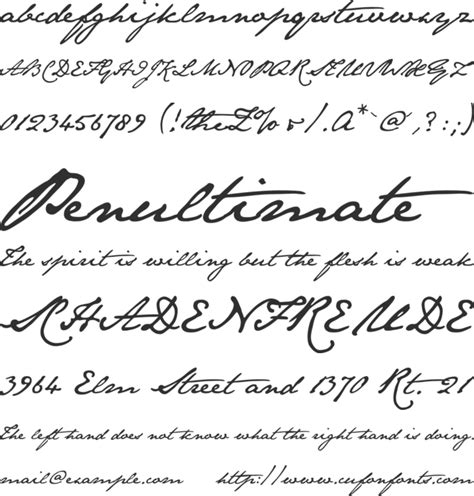 abcdefghijklmnopqrstuvwxyz
ABCDEFGHIJKLMNOPQRSTUVWXYZ
0123456789 (!the & / . A * @ , ? : ; )
Penultimate
The spirit is willing but the flesh is weak
SCHADENFREUDE
3964 Elm Street and 1370 Rt. 21
The left hand does not know what the right hand is doing.
mail@example.com http://www.cufonfonts.com